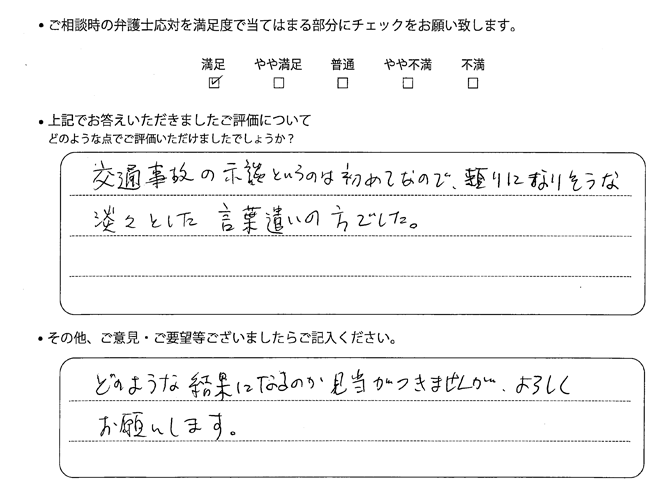 ・ご相談時の弁護士応対を満足度で当てはまる部分にチェックをお願い致します。
満足 やや満足 普通 やや不満 不満
☑ □ □ □ □
・上記でお答えいただきましたご評価について
どのような点でご評価いただけましたでしょうか？
交通事故の示談というのは初めてなので、頼りになりそうな
淡々とした言葉遣いの方でした。
・その他、ご意見・ご要望等ございましたらご記入ください。
どのような結果になるのか見当がつきませんが、よろしく
お願いします。